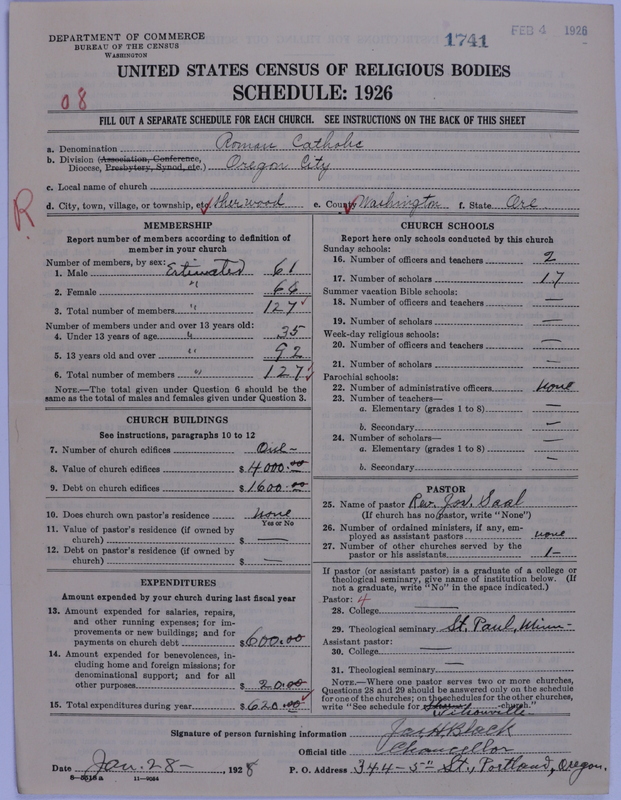 DEPARTMENT OF COMMERCE
BUREAU OF THE CENSUS
WASHINGTON
1741
FEB 4 1926
UNITED STATES CENSUS OF RELIGIOUS BODIES
SCHEDULE: 1926
08
FILL OUT A SEPARATE SCHEDULE FOR EACH CHURCH. SEE INSTRUCTIONS ON THE BACK OF THIS SHEET
a. Denomination Roman Catholic
b. Division (Association, Conference, Diocese, Presbytery, Synod, etc.) Oregon City
c. Local name of church
d. City, town, village, or township, etc. Sherwood e. County Washington f. State Ore
R
MEMBERSHIP
Report number of members according to definition of
member in your church
Number of members, by sex:
1. Male Estimated 61
2. Female " 66
3. Total number of members " 127
Number of members under and over 13 years old:
4. Under 13 years of age " 35
5. 13 years old and over " 92
6. Total number of members " 127
NOTE.—The total given under Question 6 should be the
same as the total of males and females given under Question 3.
CHURCH BUILDINGS
See instructions, paragraphs 10 to 12
7. Number of church edifices One -
8. Value of church edifices $ 4000.00
9. Debt on church edifices $ 1600.00
10. Does church own pastor's residence none
Yes or No
11. Value of pastor's residence (if owned by
church) $ —
12. Debt on pastor's residence (if owned by
church) $ —
EXPENDITURES
Amount expended by your church during last fiscal year
13. Amount expended for salaries, repairs,
and other running expenses; for im-
provements or new buildings; and for
payments on church debt $ 600.00
14. Amount expended for benevolences, in-
cluding home and foreign missions; for
denominational support; and for all
other purposes $ 20.00
15. Total expenditures during year $ 620.00
CHURCH SCHOOLS
Report here only schools conducted by this church
Sunday schools:
16. Number of officers and teachers 2
17. Number of scholars 17
Summer vacation Bible schools:
18. Number of officers and teachers —
19. Number of scholars —
Week-day religious schools:
20. Number of officers and teachers —
21. Number of scholars —
Parochial schools:
22. Number of administrative officers none
23. Number of teachers—
a. Elementary (grades 1 to 8) —
b. Secondary —
24. Number of scholars—
a. Elementary (grades 1 to 8) —
b. Secondary —
PASTOR
25. Name of pastor Rev. Jos. Saal
(If church has no pastor, write "None")
26. Number of ordained ministers, if any, em-
ployed as assistant pastors none
27. Number of other churches served by the
pastor or his assistants 1-
If pastor (or assistant pastor) is a graduate of a college or
theological seminary, give name of institution below. (If
not a graduate, write "No" in the space indicated.)
Pastor: 4
28. College —
29. Theological seminary St. Paul, Minn-
Assistant pastor:
30. College —
31. Theological seminary —
NOTE.—Where one pastor serves two or more churches,
Questions 28 and 29 should be answered only on the schedule
for one of the churches; on the schedules for the other churches,
write "See schedule for church."
Wilsonville
Signature of person furnishing information Jas H Black
Official title Chancellor
Date Jan. 28- 1928 P. O. Address 344-5th St., Portland, Oregon.
8-5516a 11-9054